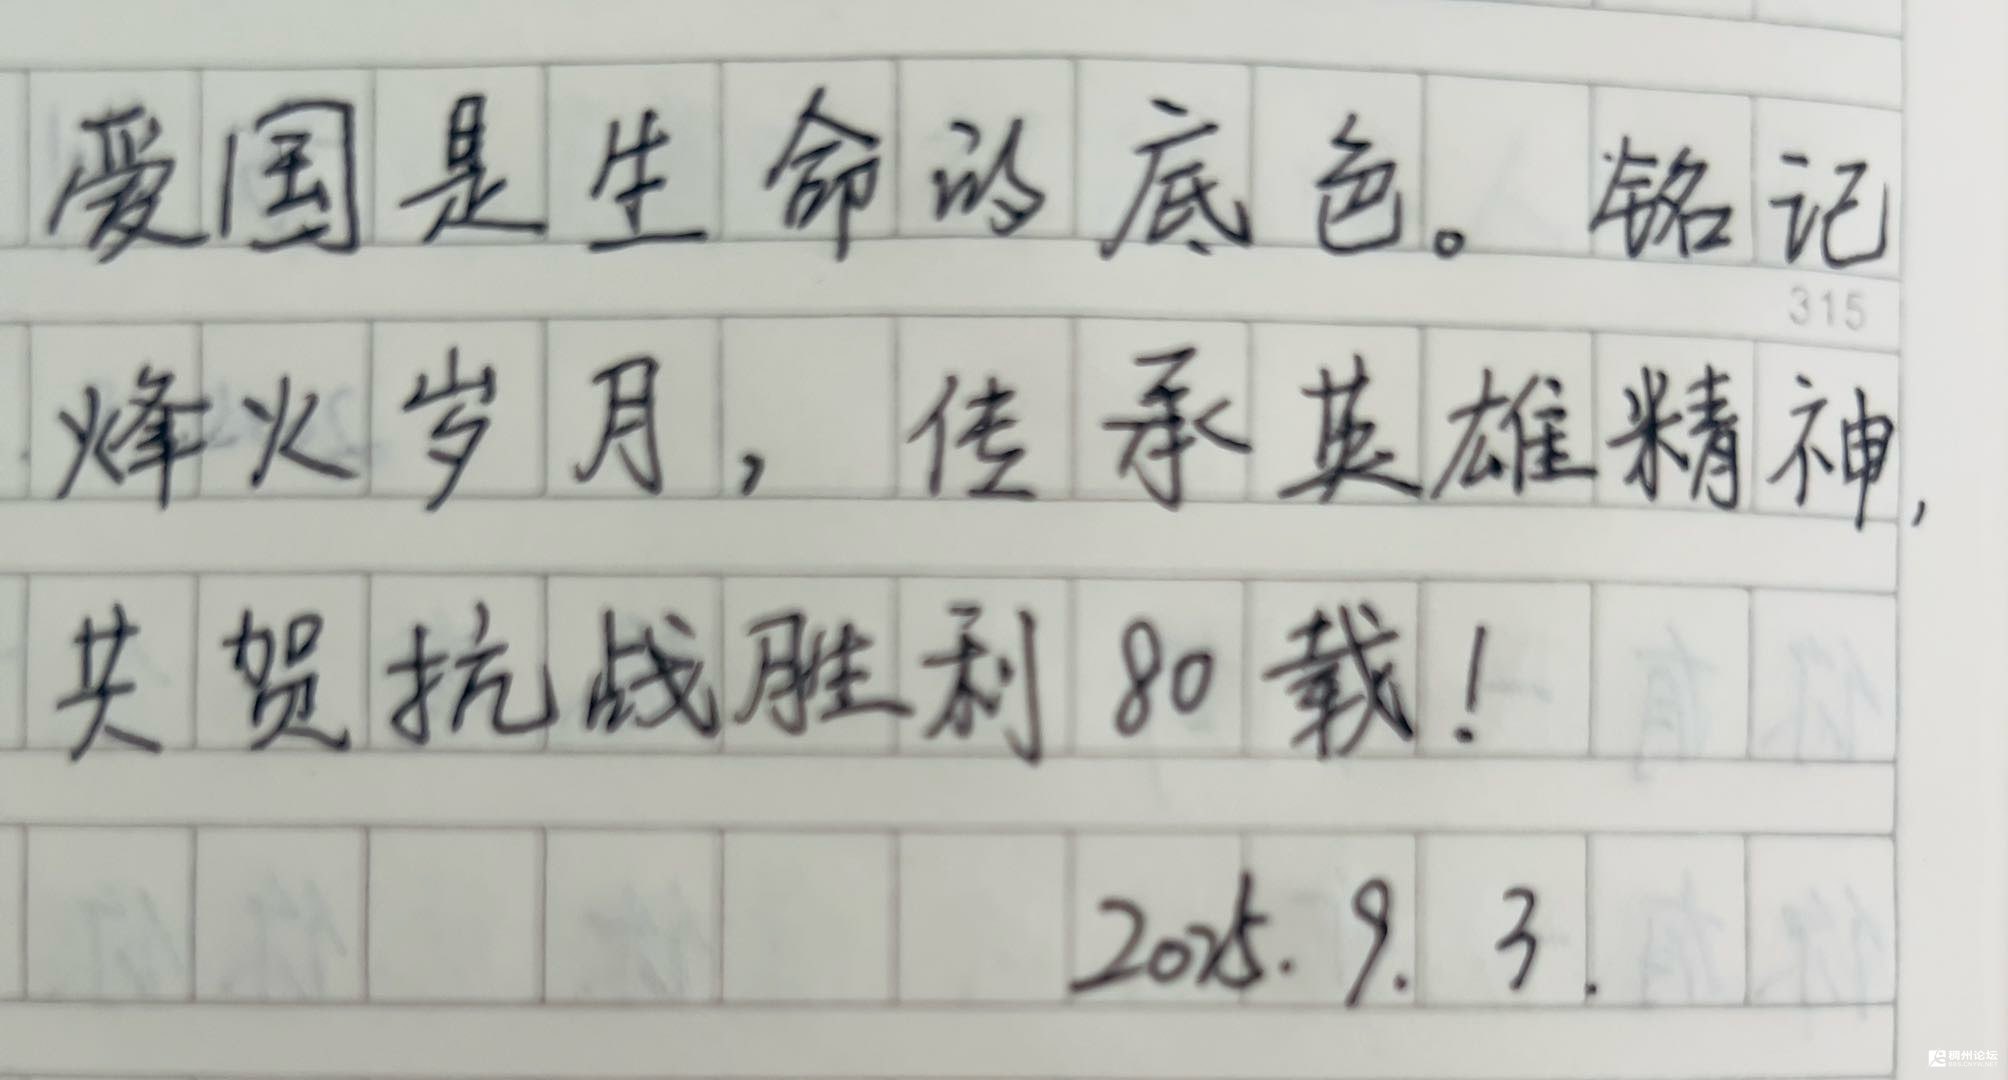 爱国是生命的底色。铭记
315
烽火岁月，传承英雄精神，
共贺抗战胜利80载！
2025.9.3.
稠州论坛
BBS.CNYW.NET